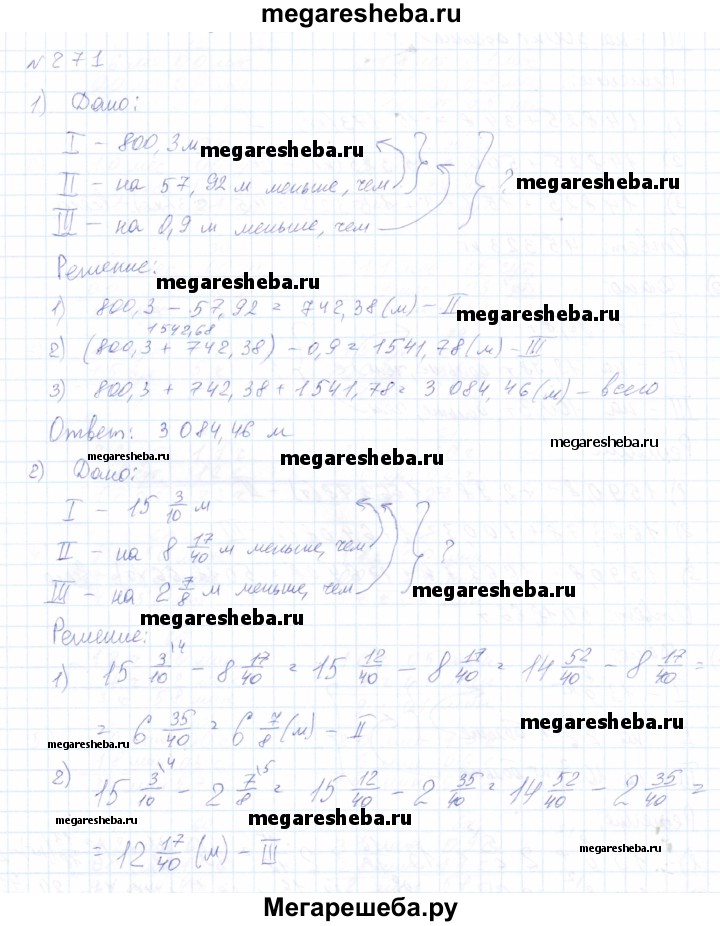 megaresheba.ru
№ 271
1) Дано:
I – 800,3 м
megaresheba.ru
II – на 57,92 м меньше, чем } } ?
megaresheba.ru
III – на 0,9 м меньше, чем
Решение:
megaresheba.ru
1) 800,3 – 57,92 = 742,38 (м) – II
megaresheba.ru
1542,68
2) (800,3 + 742,38) – 0,9 = 1541,78 (м) – III
3) 800,3 + 742,38 + 1541,78 = 3 084,46 (м) – всего
Ответ: 3 084,46 м
megaresheba.ru
megaresheba.ru
megaresheba.ru
2) Дано:
I – 15 3/10 м
II – на 8 17/40 м меньше, чем } ?
III – на 2 7/8 м меньше, чем
megaresheba.ru
megaresheba.ru
Решение:
1) 15 3/10 \4 – 8 17/40 = 15 12/40 – 8 17/40 = 14 52/40 – 8 17/40 =
= 6 35/40 = 6 7/8 (м) – II
megaresheba.ru
megaresheba.ru
2) 15 3/10 \4 – 2 7/8 \5 = 15 12/40 – 2 35/40 = 14 52/40 – 2 35/40 =
megaresheba.ru
megaresheba.ru
= 12 17/40 (м) – III
megaresheba.ru
Мегарешеба.ру